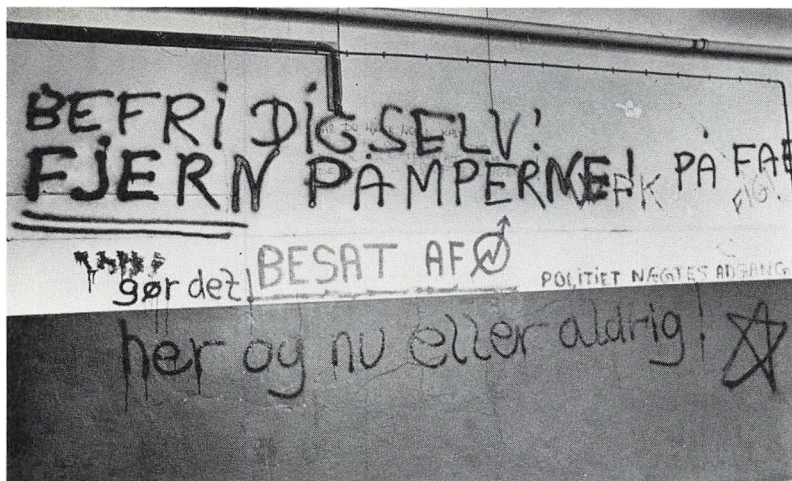 BEFRI DIG SELV!
FJERN PAMPERNE! PÅ FAE
gør det!
BESAT AF
POLITIET NÆGTES ADGANG
her og nu eller aldrig!